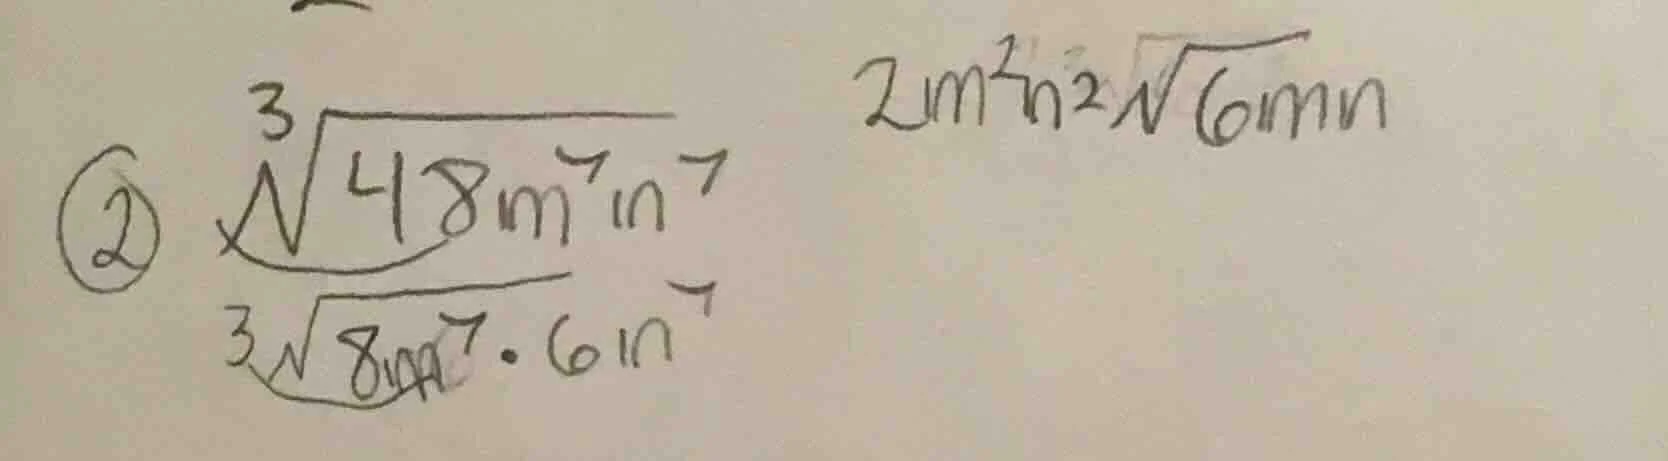 ② ∛48m⁷n⁷
∛8m⁷ · 6n⁷
2m²n²√6mn